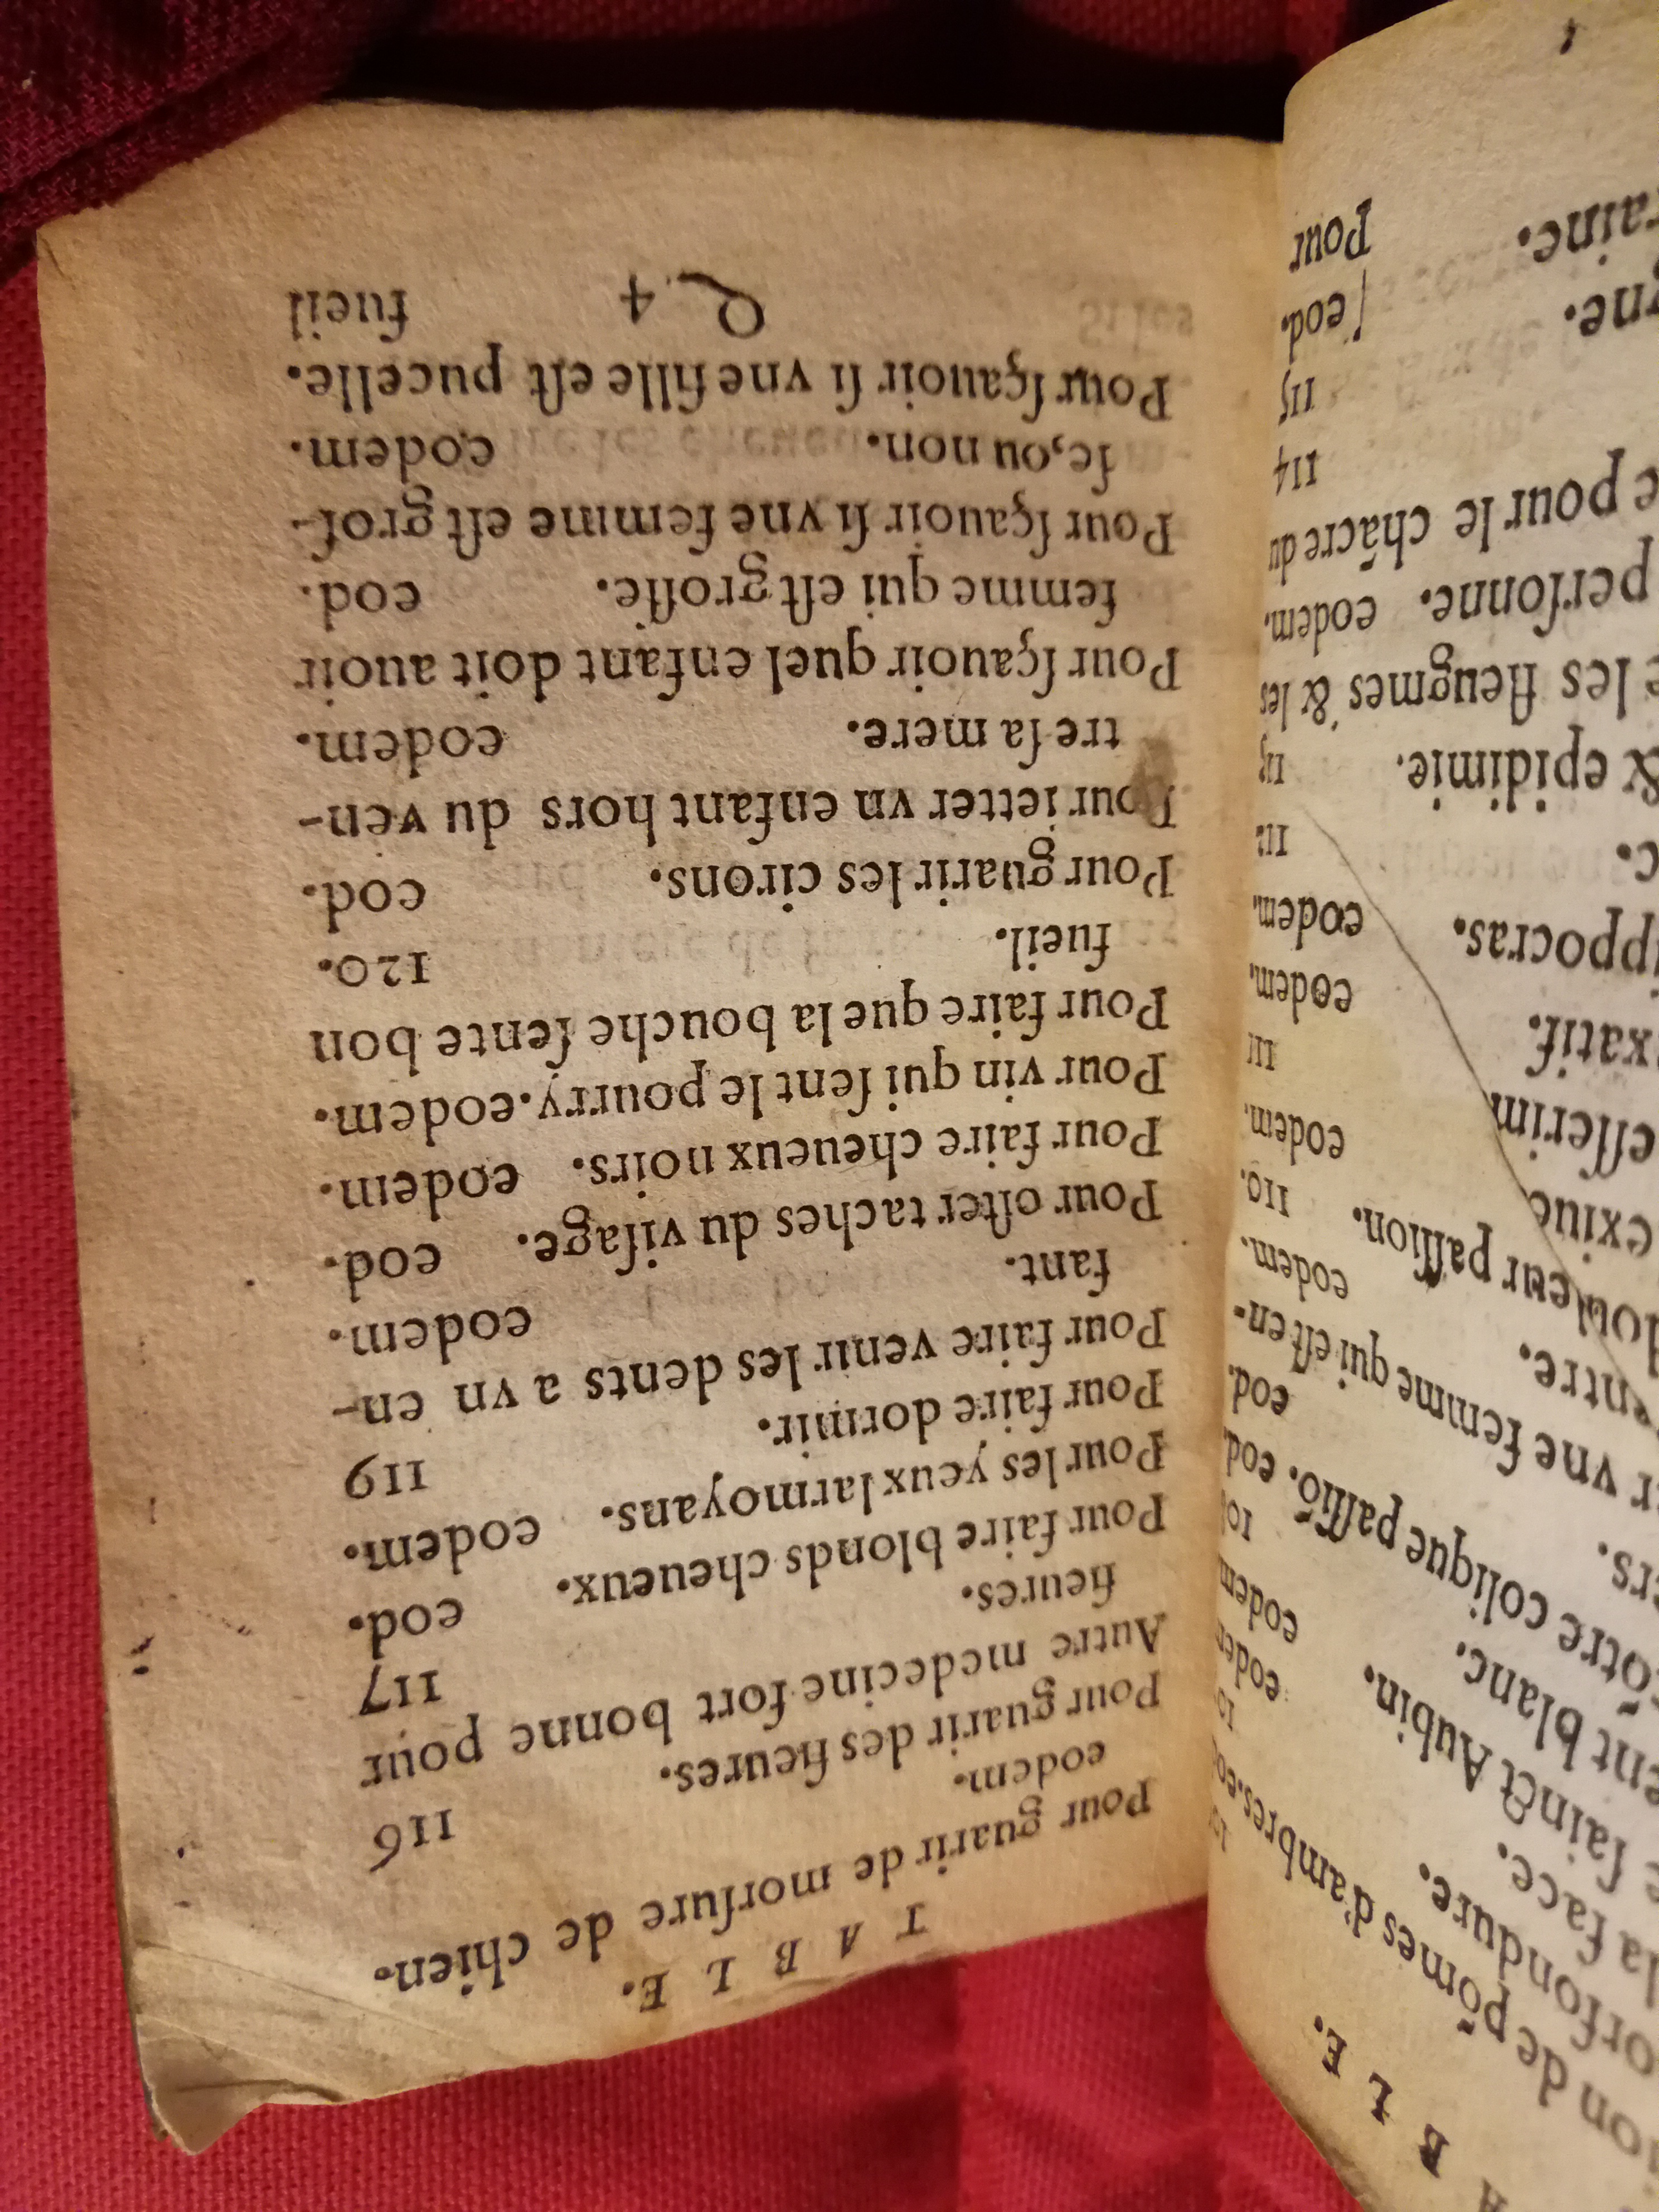 A B L E.
on de põmes d'ambres.eo
orfondure.
la face.
ſainct Aubin. eodem
ent blanc. eodem
cõtre colique paſſiõ. eod.
ers. eod.
r vne femme qui eſt en-
ntre. eodem.
douleur paſſion. 110.
exiue eodem.
eſſerim 111
xatif. eodem.
ippocras. eodem.
& epidimie.
e les fleugmes & les
perſonne. eodem.
e pour le chãcre du
114
115
gne. [eod.
raine.
Pour
T A B L E.
Pour guarir de morſure de chien.
eodem.
Pour guarir des fieures. 116
Autre medecine fort bonne pour
fieures. 117
Pour faire blonds cheueux. eod.
Pour les yeux larmoyans. eodem.
Pour faire dormir. 119
Pour faire venir les dents a vn en-
fant. eodem.
Pour oſter taches du viſage. eod.
Pour faire cheueux noirs. eodem.
Pour vin qui ſent le pourry.eodem.
Pour faire que la bouche ſente bon
fueil. 120.
Pour guarir les cirons. eod.
Pour ietter vn enfant hors du ven-
tre ſa mere. eodem.
Pour ſçauoir quel enfant doit auoir
femme qui eſt groſſe. eod.
Pour ſçauoir ſi vne femme eſt groſ-
ſe, ou non. eodem.
Pour ſçauoir ſi vne fille eſt pucelle.
Q 4 fueil